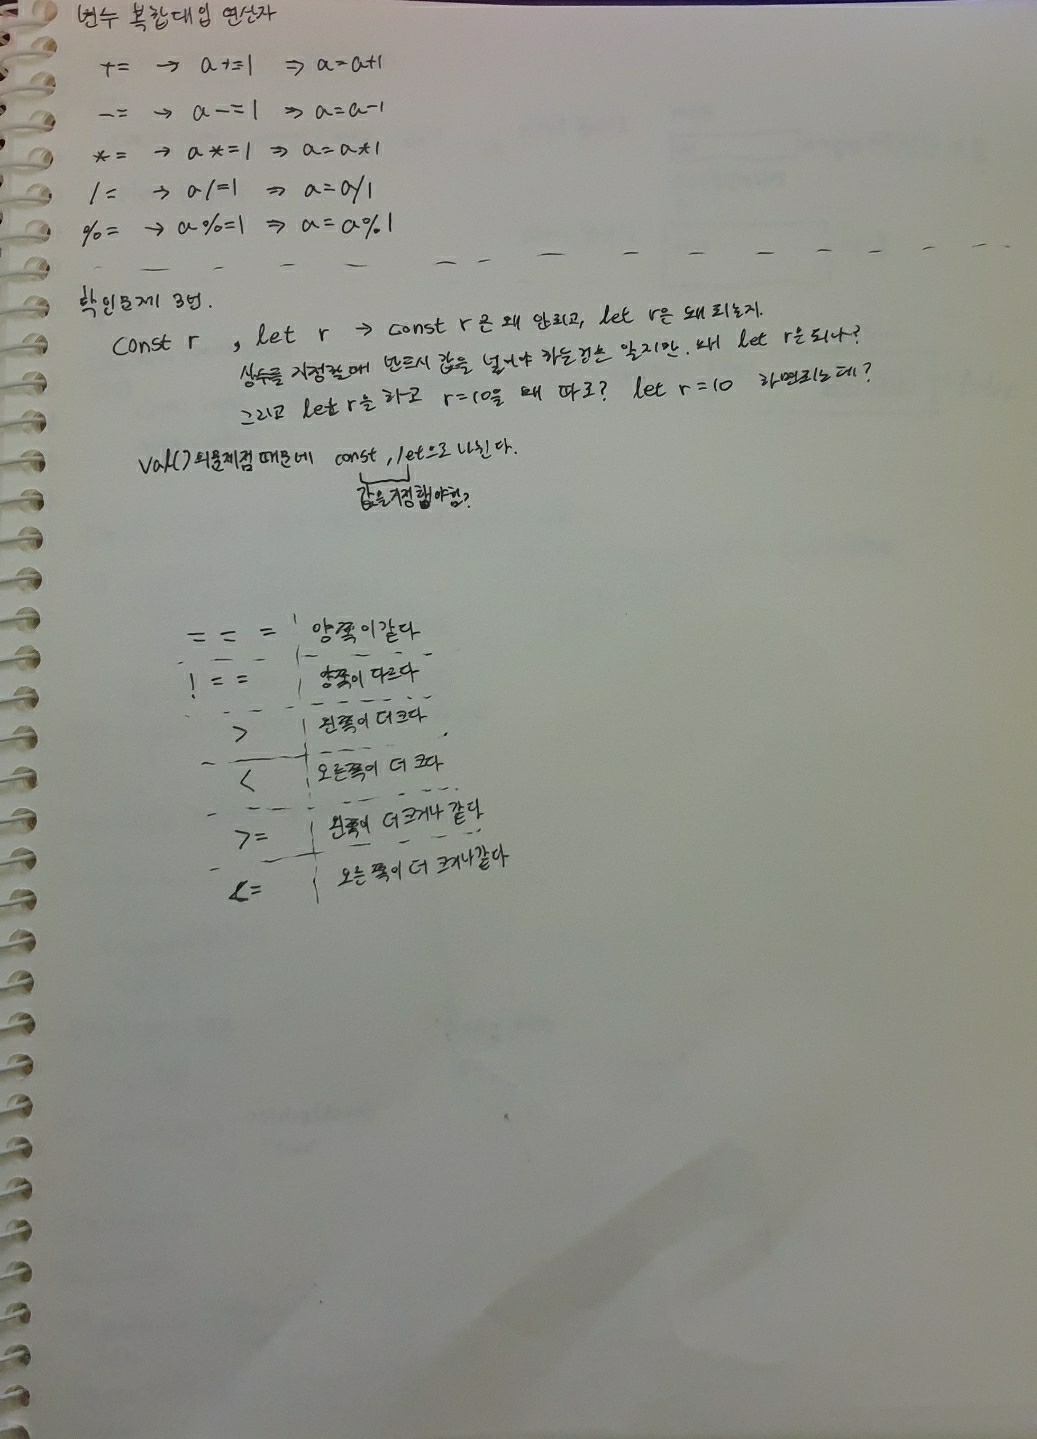 변수 복합대입 연산자
+= → a+=1 ⇒ a=a+1
-= → a-=1 ⇒ a=a-1
*= → a*=1 ⇒ a=a*1
/= → a/=1 ⇒ a=a/1
%= → a%=1 ⇒ a=a%1
확인문제 3번.
const r , let r → const r은 왜 안되고, let r은 왜 되는지.
상수를 지정할때 반드시 값을 넣어야 하는것은 알지만. 왜 let r은 되나?
그리고 let r을 하고 r=10을 왜 따로? let r=10 하면되는데?
var()의문제점 때문에 const, let으로 나뉜다.
값을 지정해야함?
=== 양쪽이 같다
!== 양쪽이 다르다
> 왼쪽이 더 크다
< 오른쪽이 더 크다
>= 왼쪽이 더 크거나 같다
<= 오른쪽이 더 크거나 같다